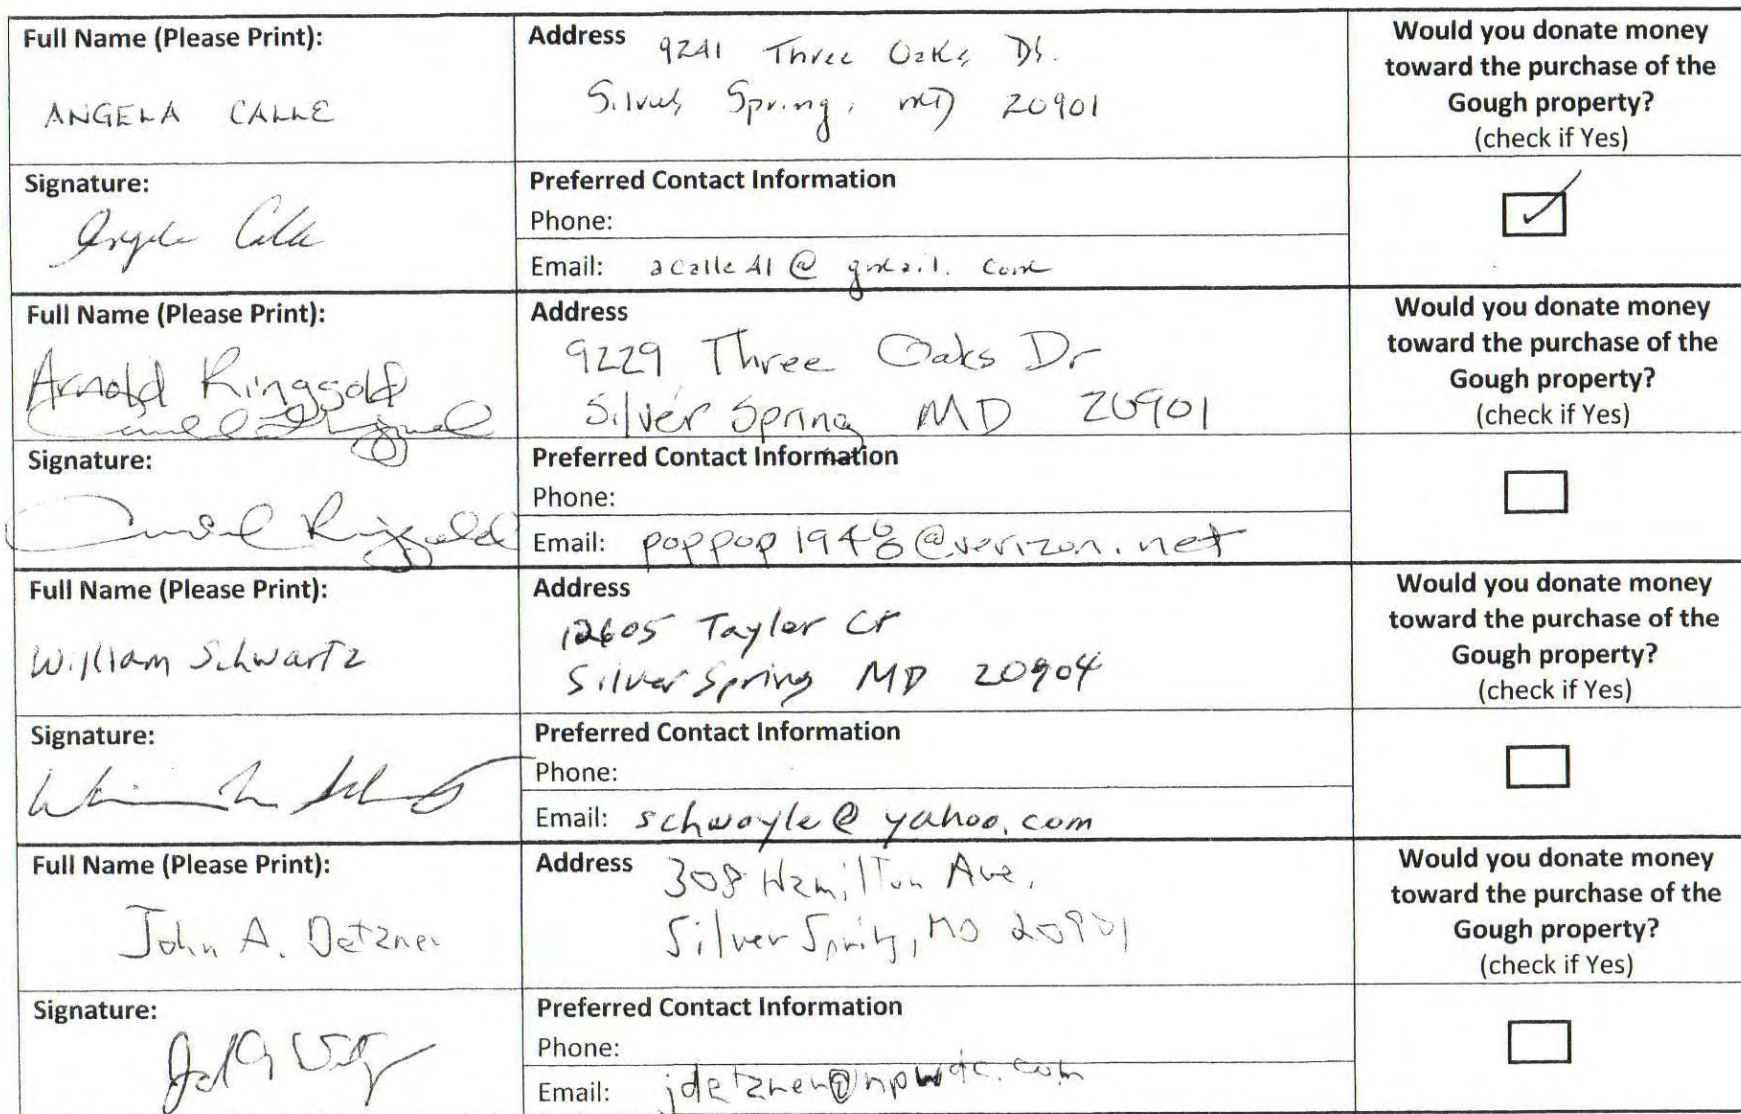 Full Name (Please Print):
ANGELA CALLE
Address 9241 Three Oaks Dr.
Silver Spring, MD 20901
Would you donate money
toward the purchase of the
Gough property?
(check if Yes)
Signature:
Angela Calle
Preferred Contact Information
Phone:
Email: acalle41@gmail.com
Full Name (Please Print):
Arnold Ringgold
Address
9229 Three Oaks Dr
Silver Spring MD 20901
Would you donate money
toward the purchase of the
Gough property?
(check if Yes)
Signature:
Arnold Ringgold
Preferred Contact Information
Phone:
Email: @verizon.net
Full Name (Please Print):
William Schwartz
Address
12605 Taylor Ct
Silver Spring MD 20904
Would you donate money
toward the purchase of the
Gough property?
(check if Yes)
Signature:
Preferred Contact Information
Phone:
Email: schwoyle@yahoo.com
Full Name (Please Print):
John A. Detzner
Address 308 Hamilton Ave,
Silver Spring, MD 20901
Would you donate money
toward the purchase of the
Gough property?
(check if Yes)
Signature:
Preferred Contact Information
Phone:
Email: jdetzner@npwdc.com